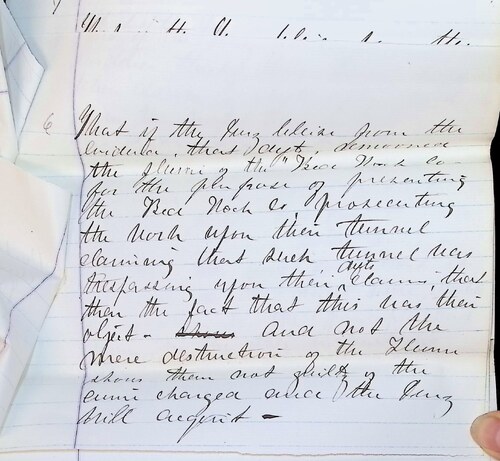 6
That if the Jury believe from the
evidence, that defts. removed
the flume of the "Bed Rock Co
for the purpose of preventing
the Bed Rock Co, prosecuting
the work upon their tunnel
claiming that such tunnel was
trespassing upon their defts claims, that
then the fact that this was their
object - and not the
mere destruction of the flume
shows them not guilty of the
crime charged and the Jury
will acquit -